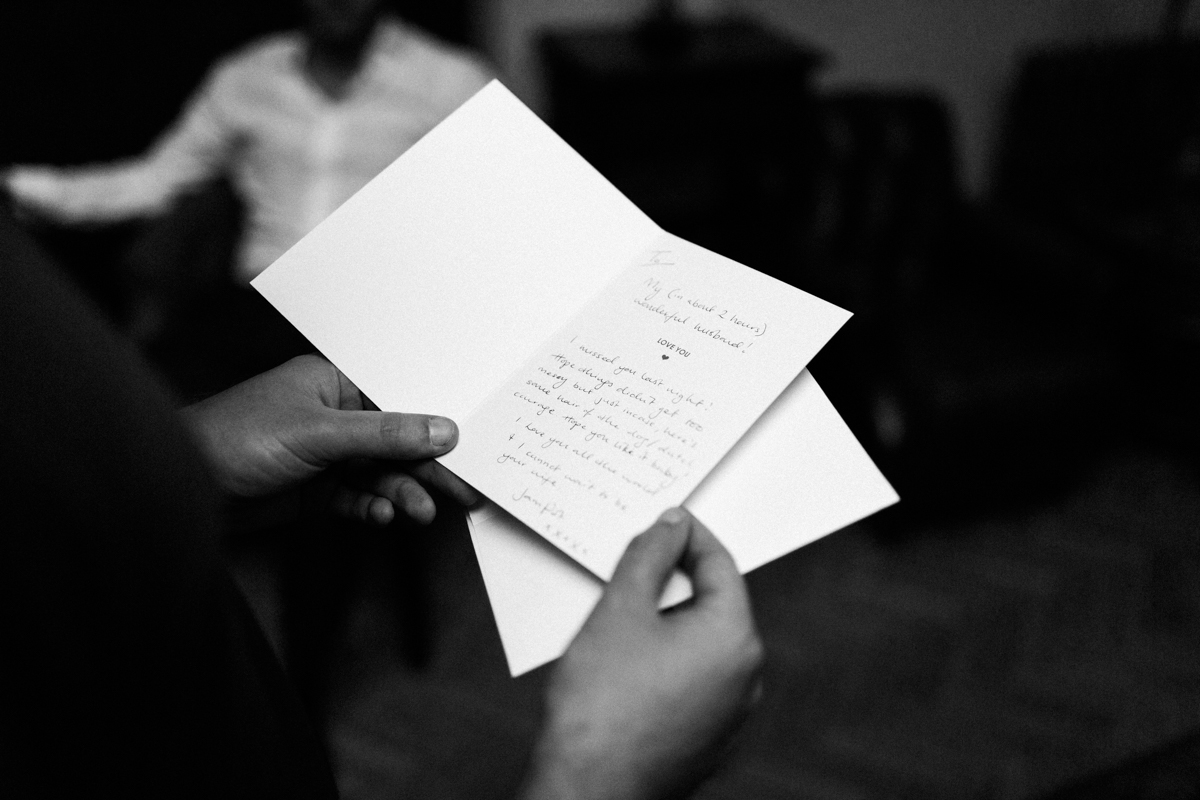 To
My (in about 2 hours)
wonderful husband!
LOVE YOU
I missed you last night!
Hope things didn't get too
messy but just incase, here's
some hair of the dog / dutch
courage. Hope you like it baby
I love you all the world
& I cannot wait to be
your wife
xxxxx